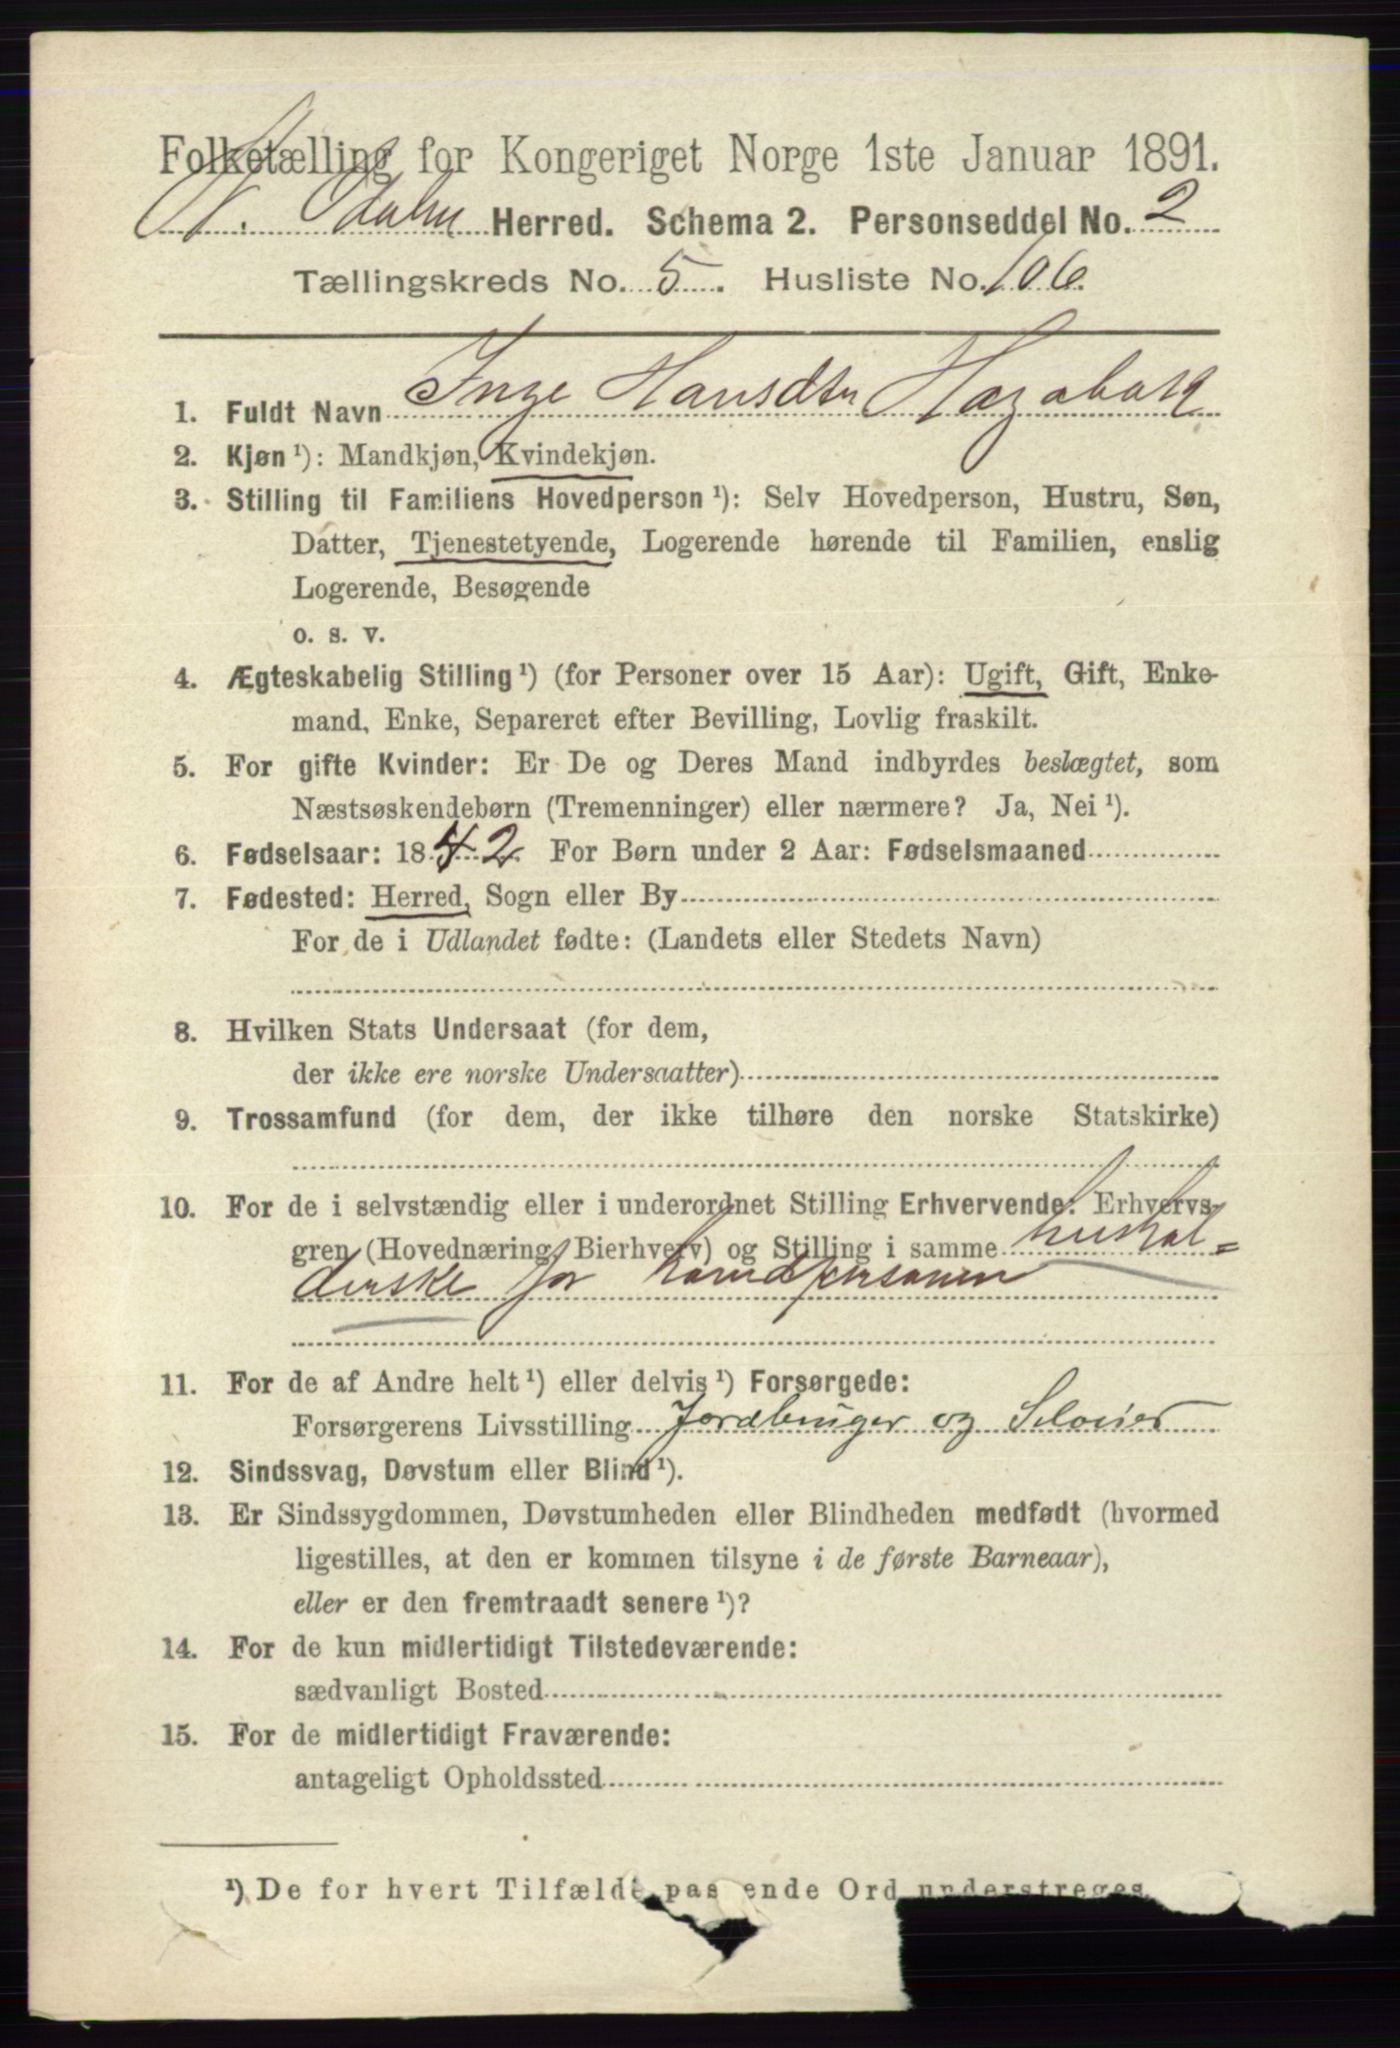 Folketælling for Kongeriget Norge 1ste Januar 1891.
N. Odalen Herred. Schema 2. Personseddel No. 2
Tællingskreds No. 5. Husliste No. 106.
1. Fuldt Navn Inge Hansdtr Hagabakk
2. Kjøn ¹): Mandkjøn, Kvindekjøn.
3. Stilling til Familiens Hovedperson ¹): Selv Hovedperson, Hustru, Søn,
Datter, Tjenestetyende, Logerende hørende til Familien, enslig
Logerende, Besøgende
o. s. v.
4. Ægteskabelig Stilling ¹) (for Personer over 15 Aar): Ugift, Gift, Enke-
mand, Enke, Separeret efter Bevilling, Lovlig fraskilt.
5. For gifte Kvinder: Er De og Deres Mand indbyrdes beslægtet, som
Næstsøskendebørn (Tremenninger) eller nærmere? Ja, Nei ¹).
6. Fødselsaar: 1842. For Børn under 2 Aar: Fødselsmaaned
7. Fødested: Herred, Sogn eller By
For de i Udlandet fødte: (Landets eller Stedets Navn)
8. Hvilken Stats Undersaat (for dem,
der ikke ere norske Undersaatter)
9. Trossamfund (for dem, der ikke tilhøre den norske Statskirke)
10. For de i selvstændig eller i underordnet Stilling Erhvervende: Erhvervs-
gren (Hovednæring, Bierhverv) og Stilling i samme hushol-
derske for
11. For de af Andre helt ¹) eller delvis ¹) Forsørgede:
Forsørgerens Livsstilling Jordbruger og Selveier
12. Sindssvag, Døvstum eller Blind ¹).
13. Er Sindssygdommen, Døvstumheden eller Blindheden medfødt (hvormed
ligestilles, at den er kommen tilsyne i de første Barneaar),
eller er den fremtraadt senere ¹)?
14. For de kun midlertidigt Tilstedeværende:
sædvanligt Bosted
15. For de midlertidigt Fraværende:
antageligt Opholdssted
¹) De for hvert Tilfælde pas ende Ord understreges